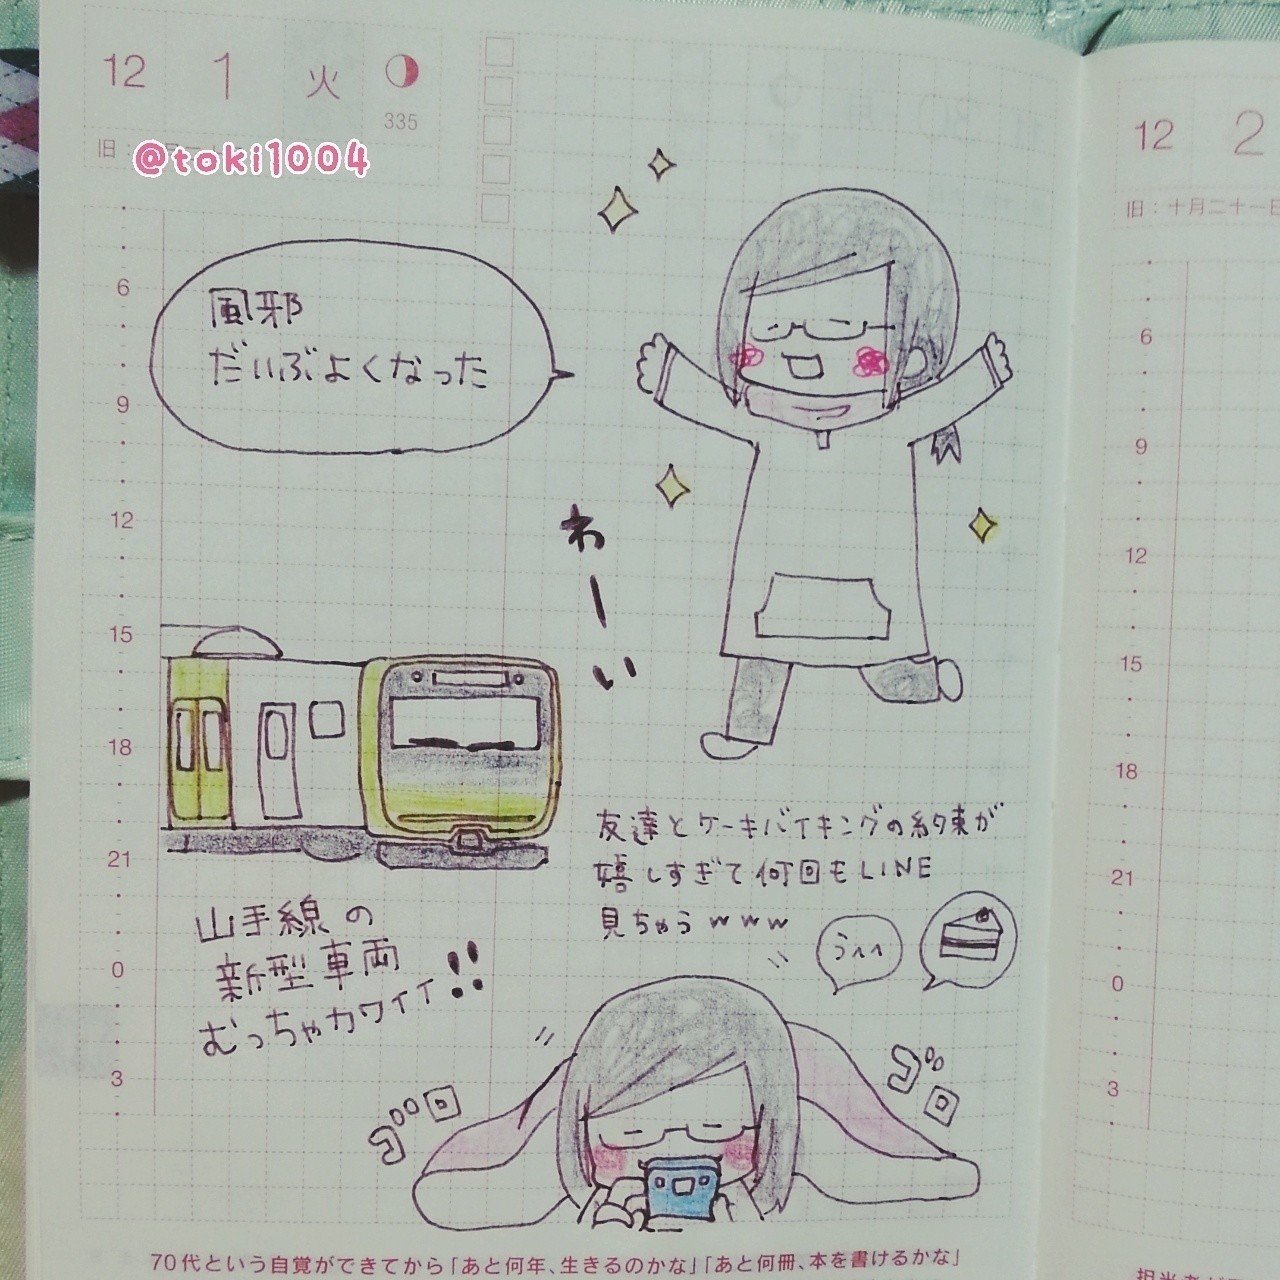 12 1 火
335
旧:
@toki1004
風邪
だいぶよくなった
わーい
山手線の
新型車両
むっちゃカワイイ!!
友達とケーキバイキングの約束が
嬉しすぎて何回もLINE
見ちゃうwww
うへへ
ゴロ
ゴロ
6
9
12
15
18
21
0
3
70代という自覚ができてから「あと何年、生きるのかな」「あと何冊、本を書けるかな」
12 2
旧:十月二十一日
6
9
12
15
18
21
0
3